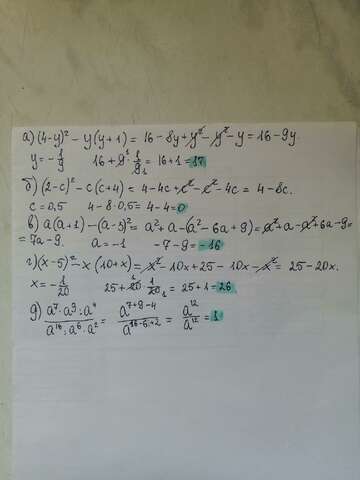 а) (4-y)² - y(y+1) = 16 - 8y + y² - y² - y = 16 - 9y.
y = - 1/9 16 + 9 · 1/9 = 16 + 1 = 17
б) (2-c)² - c(c+4) = 4 - 4c + c² - c² - 4c = 4 - 8c.
c = 0,5 4 - 8·0,5 = 4 - 4 = 0
в) a(a+1) - (a-3)² = a² + a - (a² - 6a + 9) = a² + a - a² + 6a - 9 =
= 7a - 9. a = -1 -7 - 9 = -16
г) (x-5)² - x(10+x) = x² - 10x + 25 - 10x - x² = 25 - 20x.
x = - 1/20 25 + 20 · 1/20 = 25 + 1 = 26
д) a⁷ · a⁹ : a⁴ / a¹⁶ : a⁶ · a² = a⁷⁺⁹⁻⁴ / a¹⁶⁻⁶⁺² = a¹² / a¹² = 1